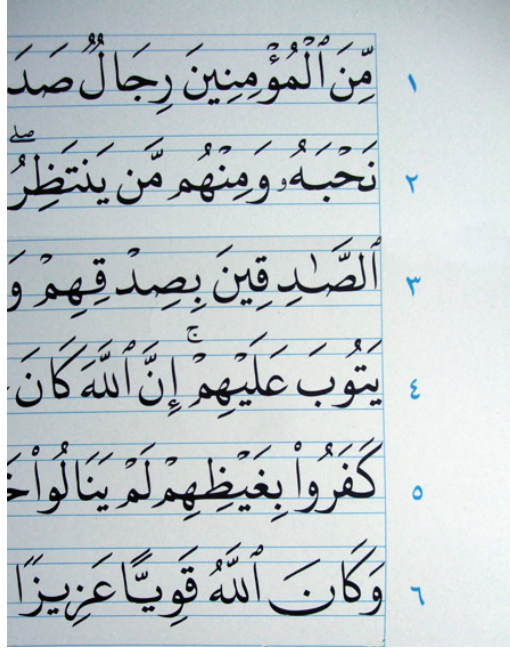 مِّنَ ٱلْمُؤْمِنِينَ رِجَالٌ صَدَ ١
نَحْبَهُۥ وَمِنْهُم مَّن يَنتَظِرُ ۖ ٢
ٱلصَّـٰدِقِينَ بِصِدْقِهِمْ وَ ٣
يَتُوبَ عَلَيْهِمْ ۚ إِنَّ ٱللَّهَ كَانَ ٤
كَفَرُوا۟ بِغَيْظِهِمْ لَمْ يَنَالُوا۟ خَ ٥
وَكَانَ ٱللَّهُ قَوِيًّا عَزِيزًا ٦